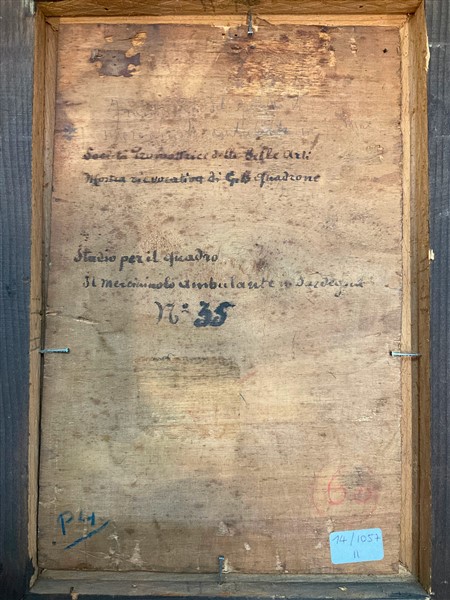 Società Promotrice delle Belle Arti
Mostra rievocativa di G.B. Quadrone
Studio per il quadro
Il Merciaiuolo ambulante in Sardegna
N.° 35
P 41
14/1057